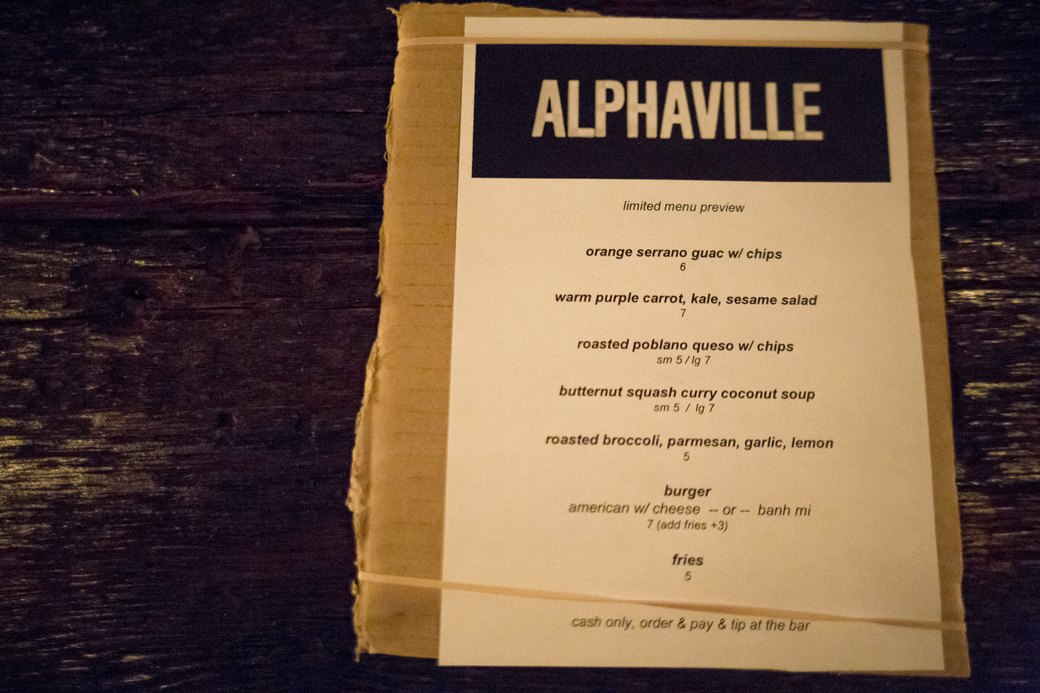 ALPHAVILLE
limited menu preview
orange serrano guac w/ chips
6
warm purple carrot, kale, sesame salad
7
roasted poblano queso w/ chips
sm 5 / lg 7
butternut squash curry coconut soup
sm 5 / lg 7
roasted broccoli, parmesan, garlic, lemon
5
burger
american w/ cheese -- or -- banh mi
7 (add fries +3)
fries
5
cash only, order & pay & tip at the bar